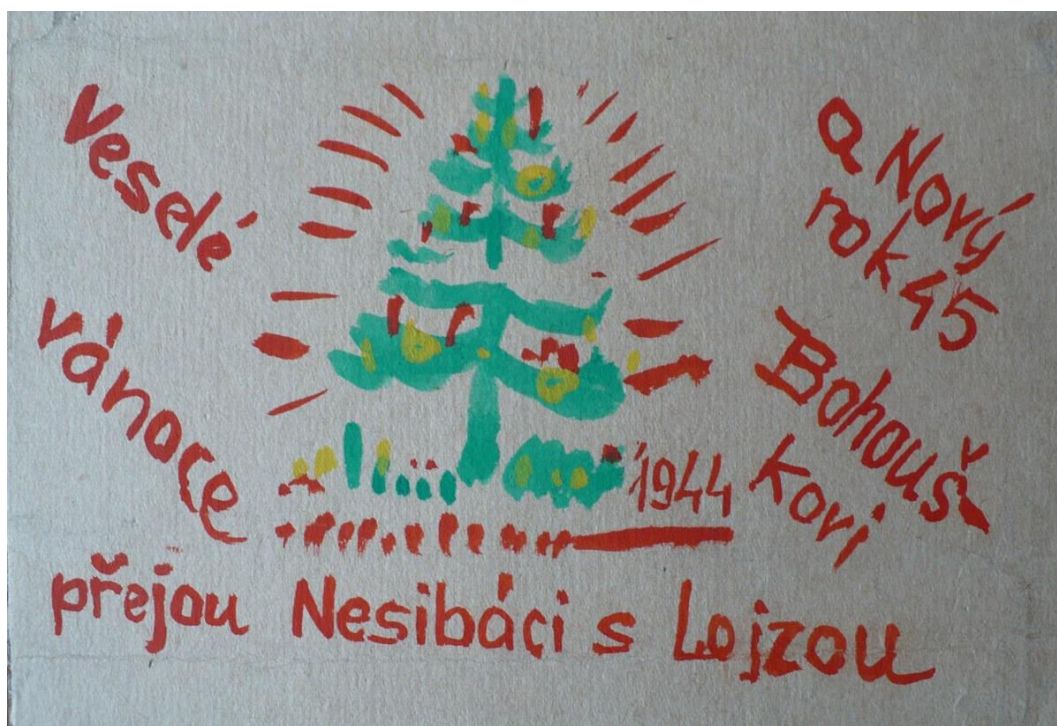 Veselé
vánoce
a Nový
rok 45
Bohouš
kovi
1944
přejou Nesibáci s Lojzou